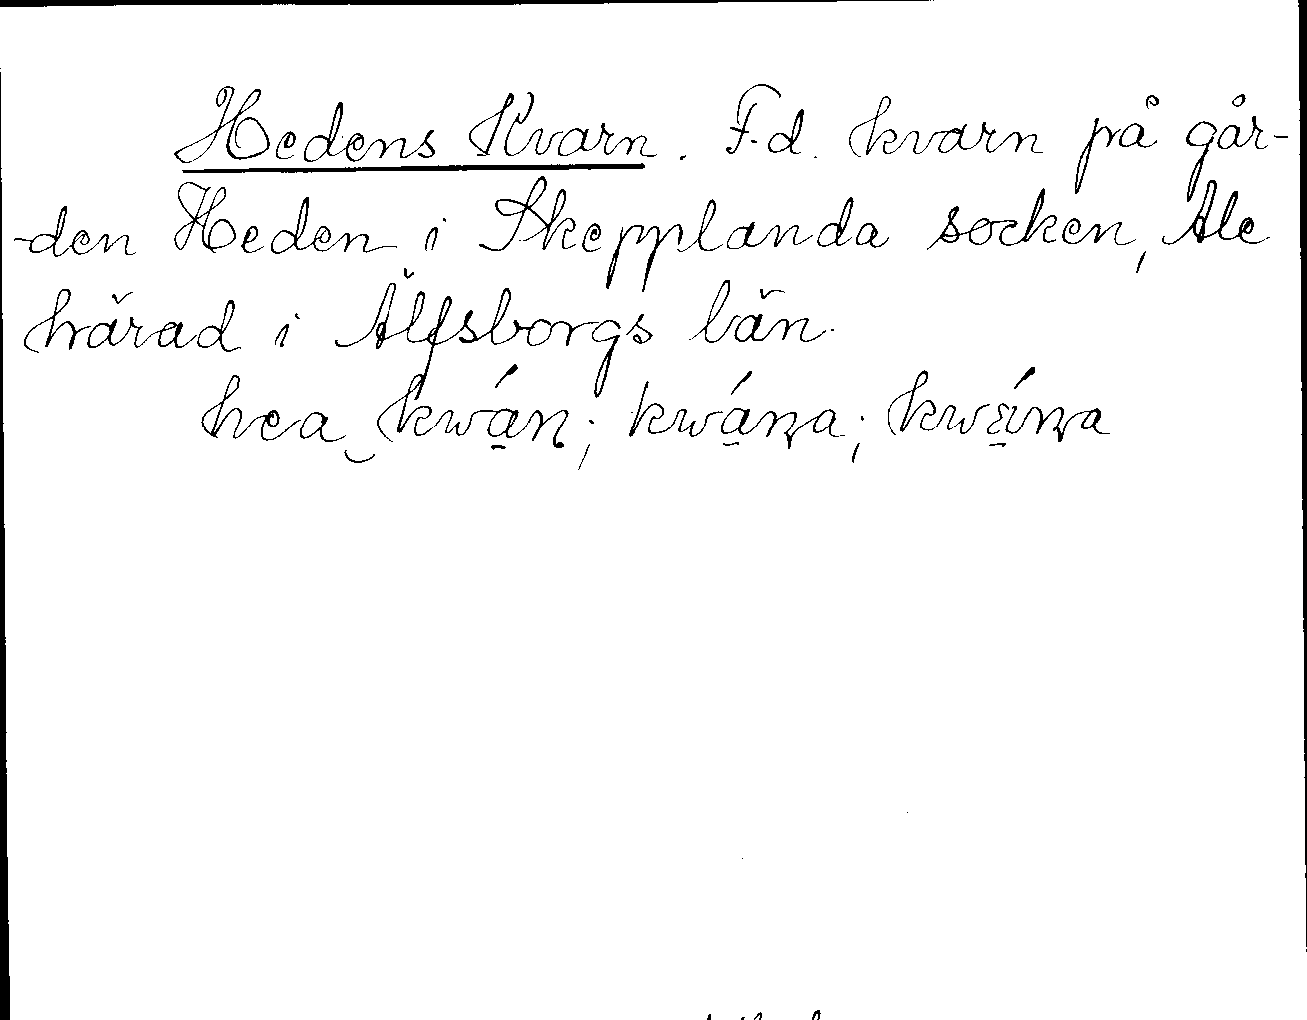 Hedens Kvarn. F.d. kvarn på går-
-den Heden i Skepplanda socken, Ale
härad i Älfsborgs län.
hea kwán; kwáṇa; kwǽṇa